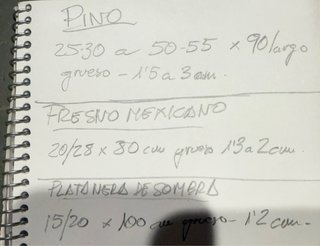 PINO
25-30 a 50-55 x 90 largo
grueso - 1'5 a 3 cm.
FRESNO MEXICANO
20/28 x 80 cm grueso 1'3 a 2 cm.
PLATANERA DE SOMBRA
15/20 x 100 cm grueso - 1'2 cm.